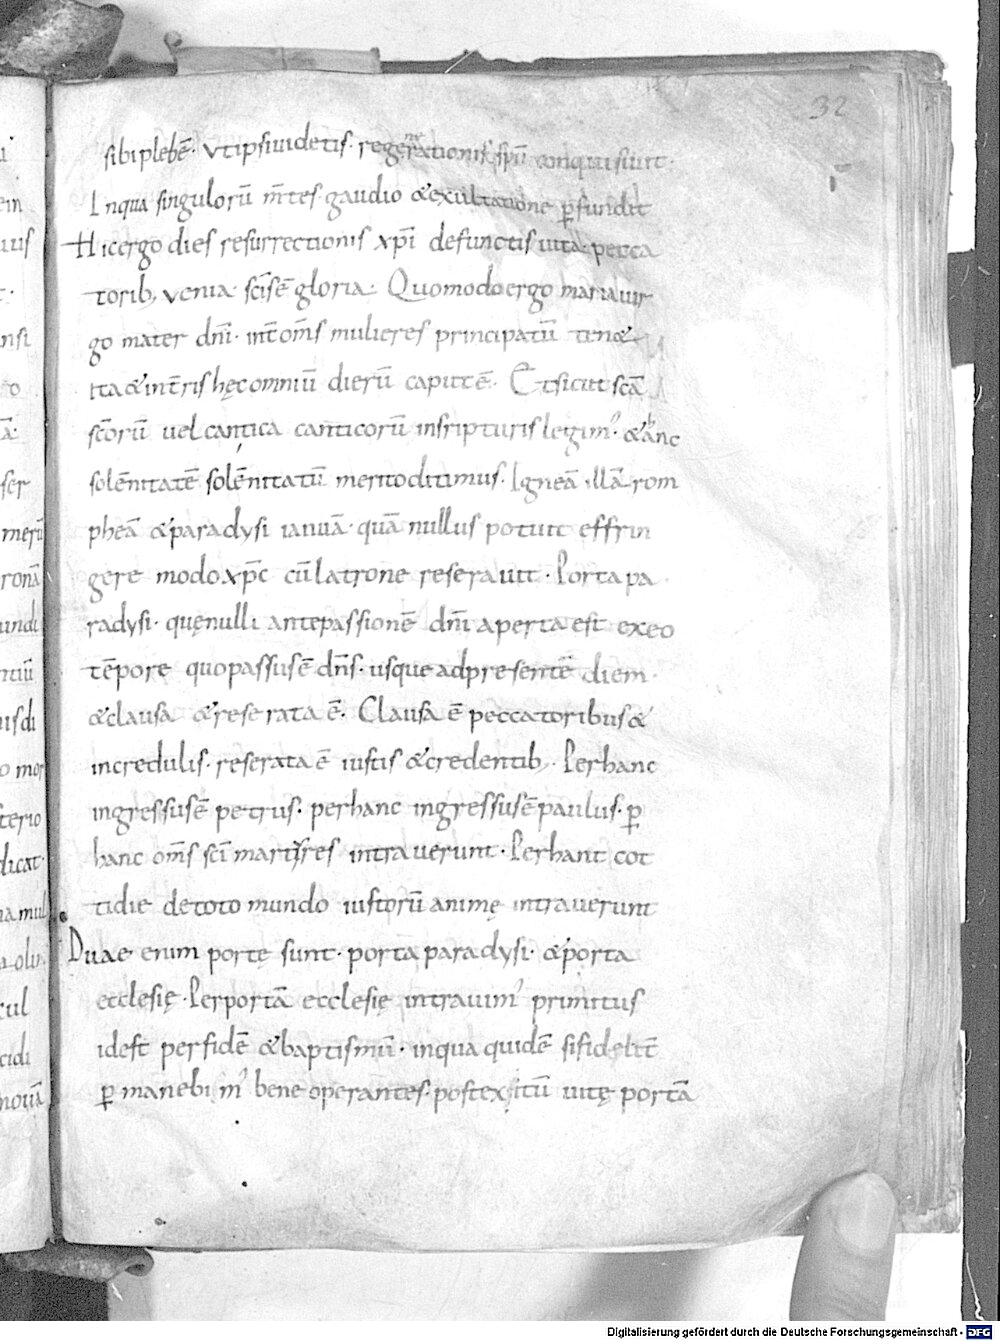 32
sibi plebē. Vtipsi uidetis. regenerationis spū conquisiuit.
Inqua singulorū m̄tes gaudio &exultatione p̄fundit
Hicergo dies resurrectionis xp̄i defunctis uita. pecca
torib; venia. sc̄is ē gloria. Quomodo ergo maria uir
go mater dn̄i. int̄ om̄s mulieres principatū ten&
ita&int̄ris hęc omniū dierū capitē. Et sicut sc̄a
sc̄orū uel cantica canticorū inscripturis legim'. &hanc
solēnitatē solēnitatū merito dicimus. Igneā illā rom
pheā &paradysi ianuā. quā nullus potuit effrin
gere modo xp̄c cū latrone reserauit. Porta pa
radysi. quę nulli ante passionē dn̄i aperta est exeo
tēpore quo passus ē dn̄s. usque ad presentē diem.
&clausa &reserata ē. Clausa ē peccatoribus &
incredulis. reserata ē iustis &credentib;. Per hanc
ingressus ē petrus. per hanc ingressus ē paulus. p̄
hanc om̄s sc̄i martyres intrauerunt. Per hanc cot
tidie de toto mundo iustorū animę intrauerunt
Duae enim portę sunt. porta paradysi. &porta
ecclesię. Per portā ecclesię intrauim' primitus
idest per fidē &baptismū. inqua quidē si fidelit̄
p̄manebim' bene operantes. post exitū uitę portā
Digitalisierung gefördert durch die Deutsche Forschungsgemeinschaft - DFG